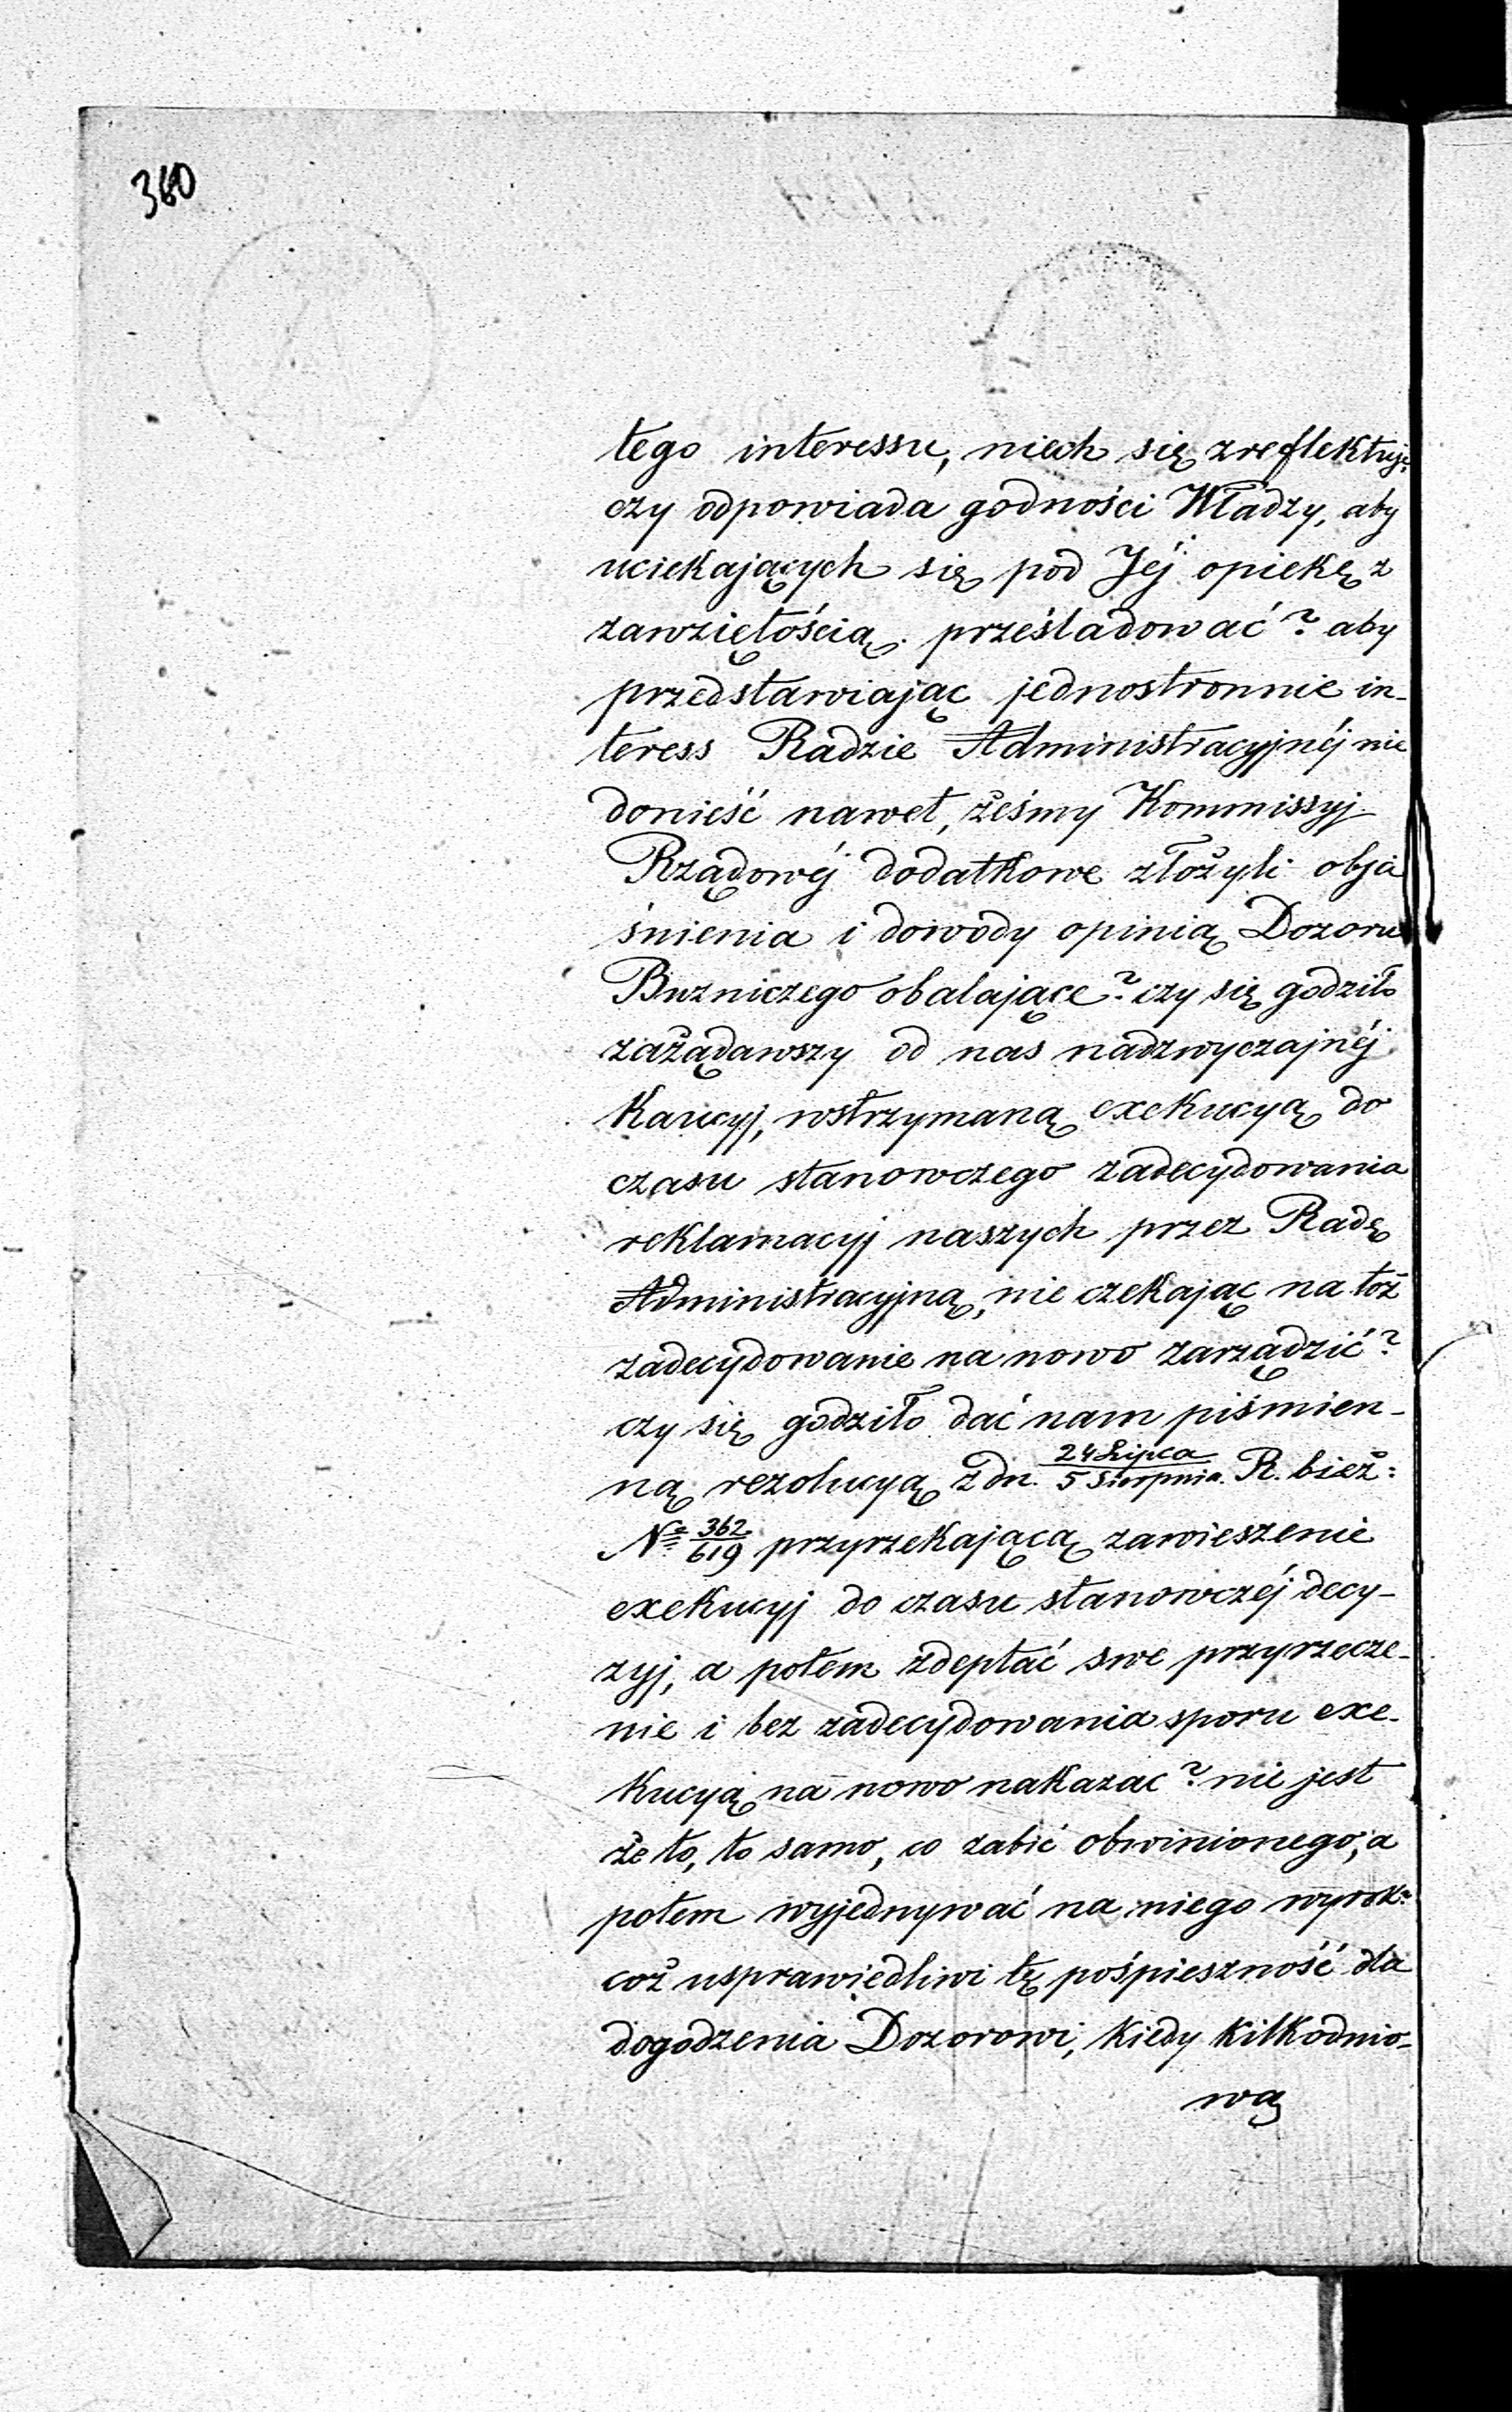 360
tego interessu, niech się zreflektuje,
czy odpowiada godności Władzy, aby
uciekających się pod Jéj opiekę z
zawziętością prześladować? aby
przedstawiając jednostronnie in-
teress Radzie Administracyjnéj nie
donieść nawet, żeśmy Kommissyj
Rządowéj dodatkowe złożyli obja
śnienia i dowody opinią Dozoru
Bużniczego obalające? czy się godziło
zażądawszy od nas nadzwyczajnéj
Kaucyj, wstrzymaną exekucyą do
czasu stanowczego zadecydowania
reklamacyj naszych przez Radę
Administracyjną, nie czekając na toż
zadecydowanie na nowo zarządzić?
czy się godziło dać nam piśmien-
ną rezolucyą z dn. 24 Lipca/5 Sierpnia R. bież:
No 362/619 przyrzekającą zawieszenie
exekucyj do czasu stanowczéj decy-
zyj, a potem zdeptać swe przyrzecze-
nie i bez zadecydowania sporu exe-
kucyą na nowo nakazac? nie jest
że to, to samo, co zabić obwinionego, a
potem wyjednywać na niego wyrok?
coż usprawiedliwi tę pośpieszność dla
dogodzenia Dozorowi, kiedy kilkodnio-
wa